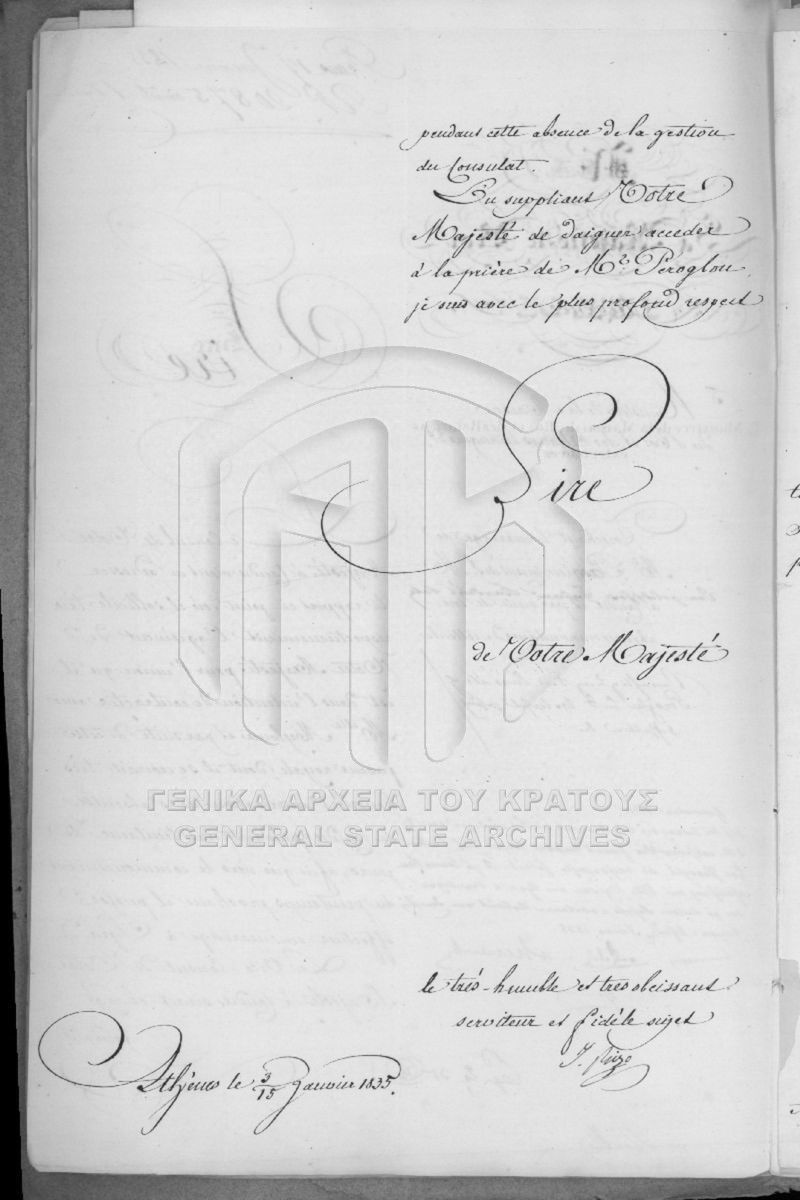 pendant cette absence de la gestion
du Consulat.
En suppliant Votre
Majesté de daigner acceder
à la prière de Mr. Péroglou,
je suis avec le plus profond respect
Sire
de Votre Majesté
ΓΕΝΙΚΑ ΑΡΧΕΙΑ ΤΟΥ ΚΡΑΤΟΥΣ
GENERAL STATE ARCHIVES
le très-humble et tres obeissant
serviteur et fidéle sujet
J. Rizo
Athènes le 3/15 Janvier 1835.